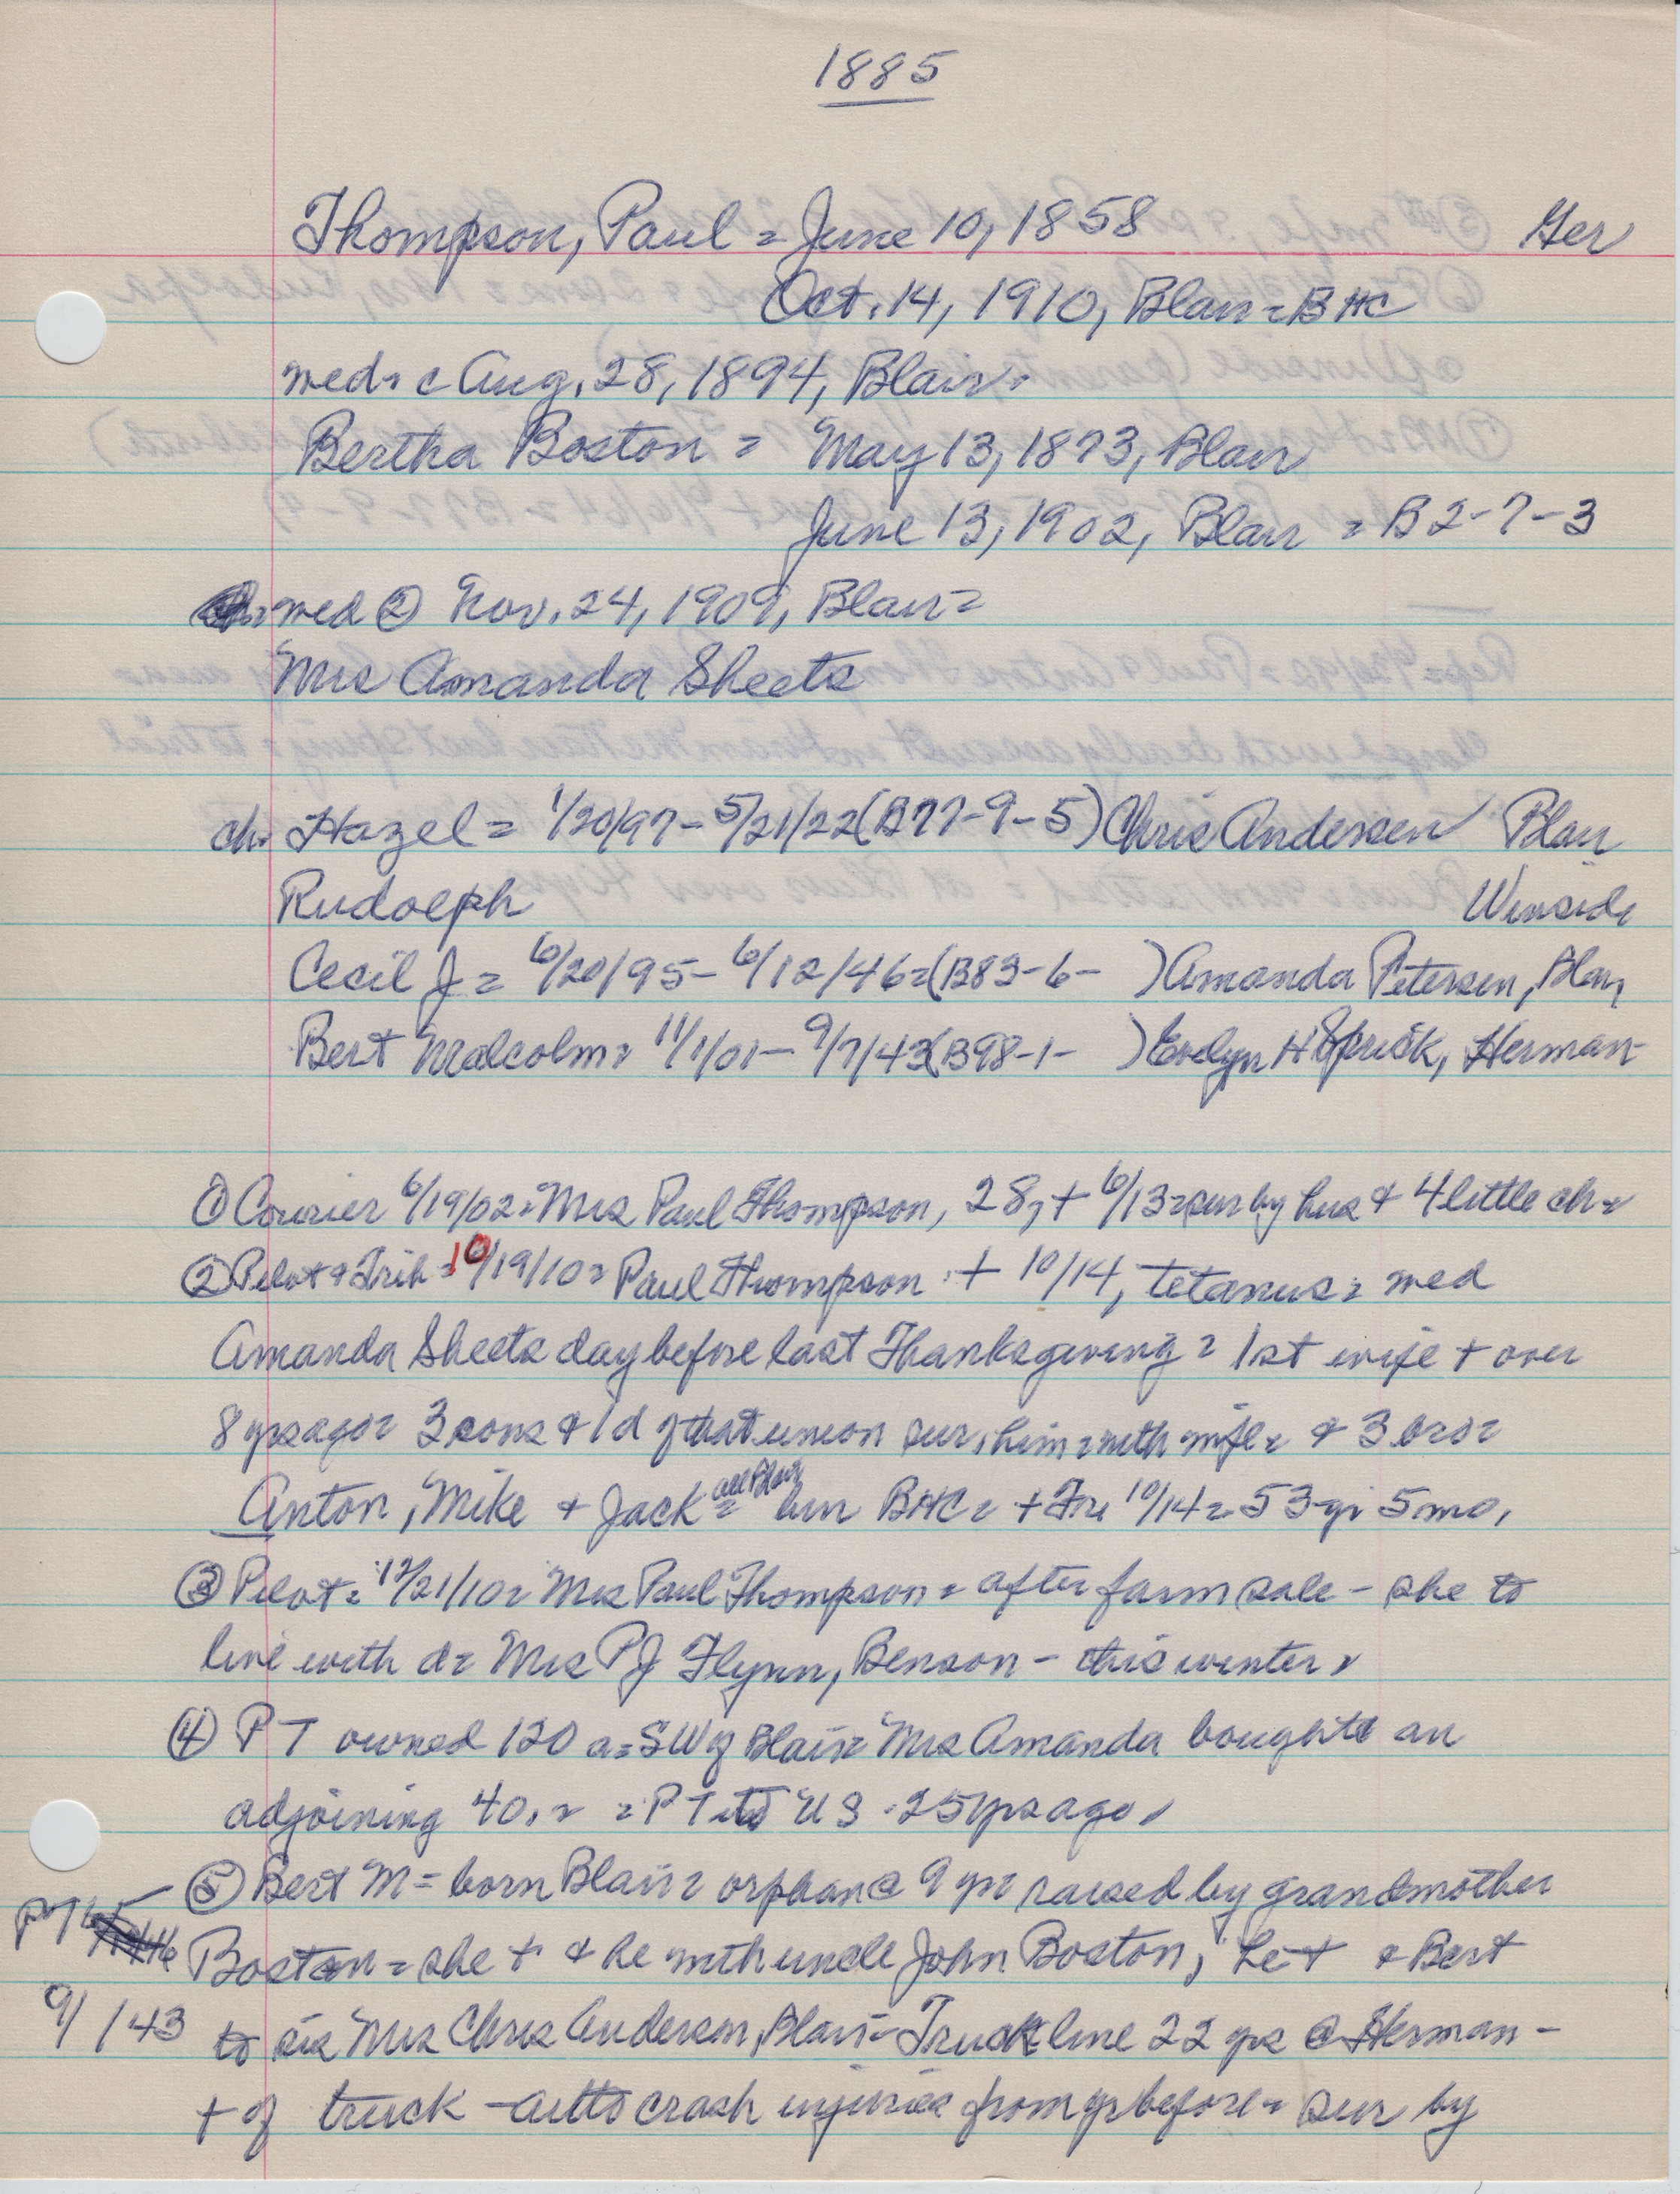 1885
Thompson, Paul = June 10, 1858 Ger
Oct. 14, 1910, Blair = BHC
wed = c Aug. 28, 1894, Blair =
Bertha Boston = May 13, 1873, Blair
June 13, 1902, Blair = B2-7-3
wed ② Nov. 24, 1909, Blair =
Mrs Amanda Sheets
ch = Hazel = 1/20/97 - 5/21/22 (B77-9-5) Chris Andersen Blair
Rudolph Winside
Cecil J = 6/20/95 - 6/12/46 = (B83-6- ) Amanda Petersen, Blair
Bert Malcolm = 11/1/01 - 9/7/43 (B98-1- ) Evelyn Herman
① Courier 6/19/02 = Mrs Paul Thompson, 28, + 6/13 = sur by hus & 4 little ch =
② Pilot & Trib = 10/19/10 = Paul Thompson + 10/14, tetanus = wed
Amanda Sheets day before last Thanksgiving = 1st wife + over
8 yrs ago = 3 sons & 1 d of that union sur, him = with wife = & 3 bros =
Anton, Mike & Jack = all Blair bur BHC = + Fri 10/14 = 53 yr 5 mo,
③ Pilot = 12/21/10 = Mrs Paul Thompson = after farm sale - she to
live with d = Mrs P J Flynn, Benson - this winter =
④ P T owned 120 a = SW of Blair = Mrs Amanda bought an
adjoining 40, = = P T to U S 25 yrs ago,
⑤ Bert M = born Blair = orphan @ 9 yr = raised by grandmother
Boston = she + & he with uncle John Boston, he + & Bert
9/ /43 to sis Mrs Chris Andersen, Blair = Truck line 22 yrs @ Herman -
+ of truck - auto crash injuries from yr before = sur by